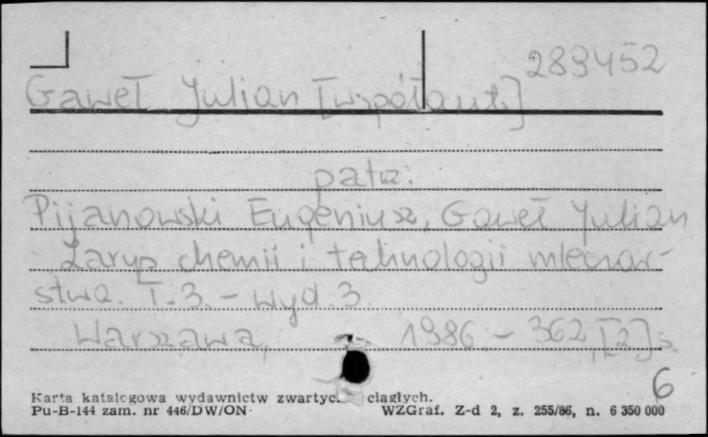 289452
Gaweł Julian [współaut.]
patrz:
Pijanowski Eugeniusz, Gaweł Julian
Zarys chemii i technologii mleczar-
stwa. T. 3. – Wyd. 3.
Warszawa, 1986 – 362, [2] s.
6
Karta katalogowa wydawnictw zwartyc. ciągłych.
Pu-B-144 zam. nr 446/DW/ON WZGraf. Z-d 2, z. 255/86, n. 6 350 000